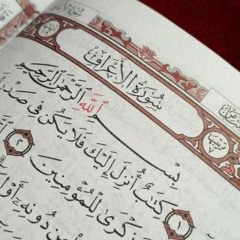 سُورَةُ الْأَعْرَافِ
بِسْمِ اللَّهِ الرَّحْمَٰنِ الرَّحِيمِ
١ كِتَٰبٌ أُنزِلَ إِلَيْكَ فَلَا يَكُن فِي صَدْرِ
كْرَىٰ لِلْمُؤْمِنِينَ ٢
مِن دُونِهِۦٓ أَوْلِ